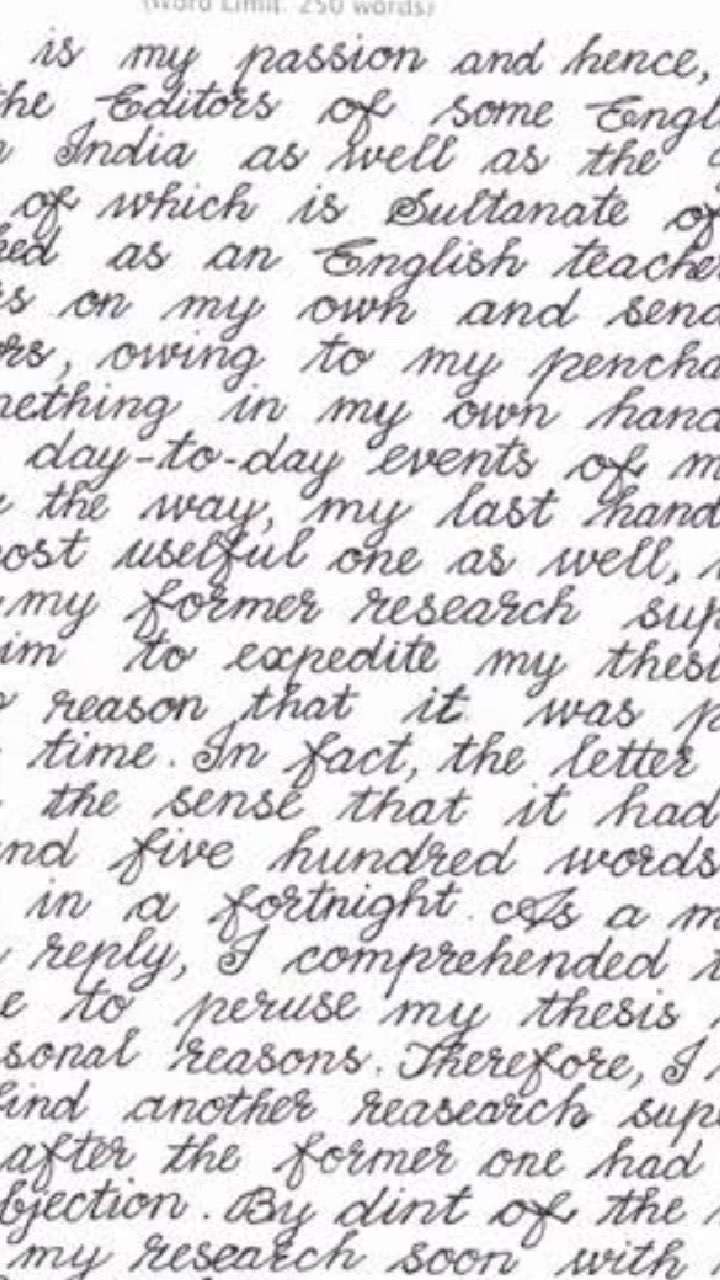 (Word Limit: 250 words)
is my passion and hence,
the Editors of some Engl
India as well as the
of which is Sultanate of
ed as an English teacher
s on my own and send
ors, owing to my pencha
mething in my own hand
day-to-day events of m
the way, my last hand
ost uselful one as well,
my former research sup
im to expedite my thesi
reason that it was p
time. In fact, the letter
the sense that it had
nd five hundred words
in a fortnight. As a m
reply, I comprehended t
e to peruse my thesis
sonal reasons. Therefore, I
find another reasearch sup
after the former one had
bjection. By dint of the
my research soon with